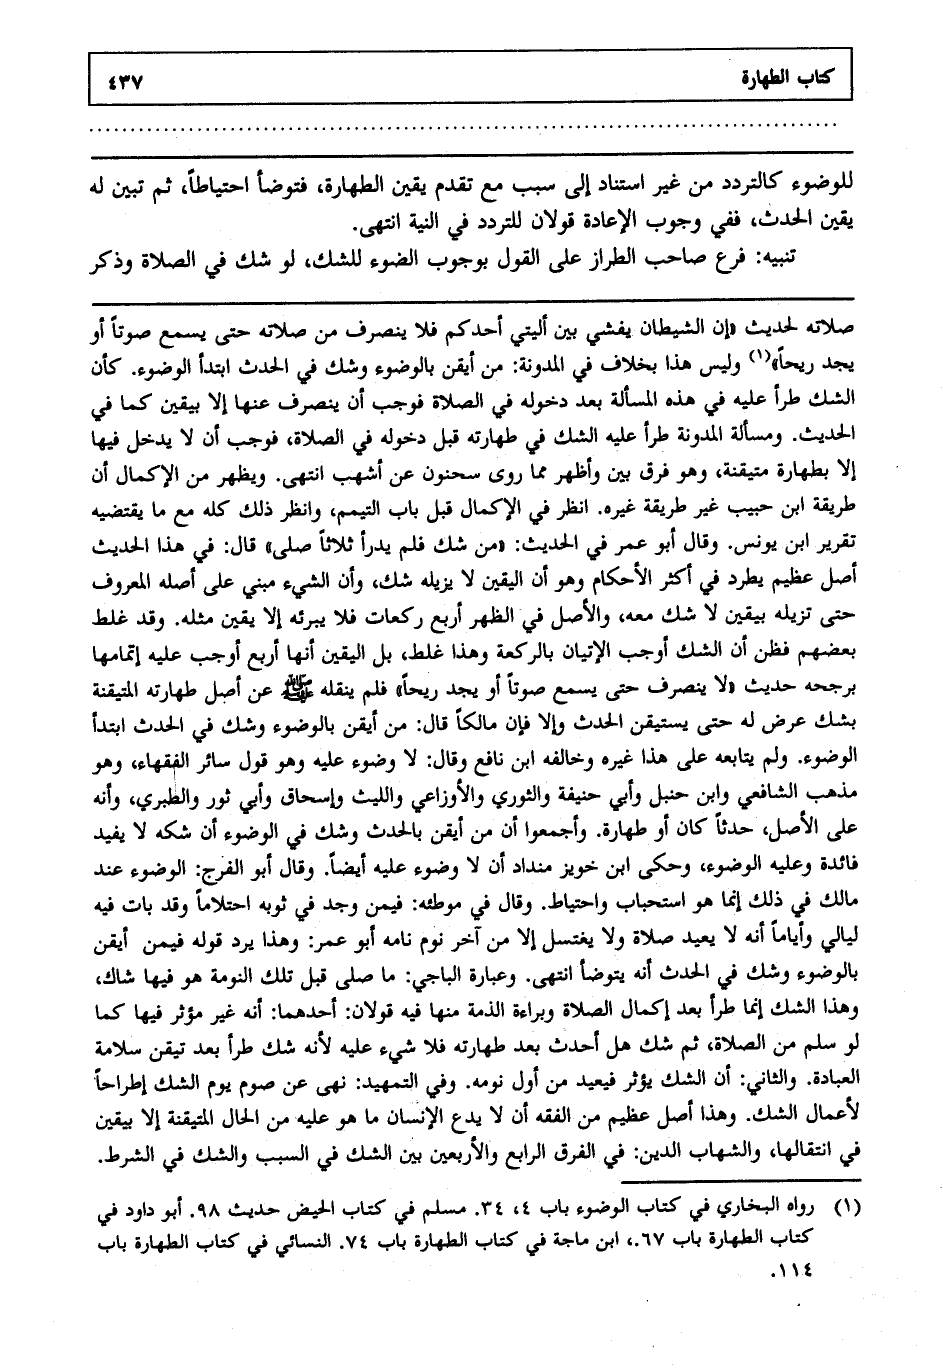 كتاب الطهارة ٤٣٧
للوضوء كالتردد من غير استناد إلى سبب مع تقدم يقين الطهارة، فتوضأ احتياطاً، ثم تبين له
يقين الحدث، ففي وجوب الإعادة قولان للتردد في النية انتهى.
تنبيه: فرع صاحب الطراز على القول بوجوب الضوء للشك، لو شك في الصلاة وذكر
صلاته لحديث «إن الشيطان يفشي بين أليتي أحدكم فلا ينصرف من صلاته حتى يسمع صوتاً أو
يجد ريحاً»(١) وليس هذا بخلاف في المدونة: من أيقن بالوضوء وشك في الحدث ابتدأ الوضوء. كأن
الشك طرأ عليه في هذه المسألة بعد دخوله في الصلاة فوجب أن ينصرف عنها إلا بيقين كما في
الحديث. ومسألة المدونة طرأ عليه الشك في طهارته قبل دخوله في الصلاة، فوجب أن لا يدخل فيها
إلا بطهارة متيقنة، وهو فرق بين وأظهر مما روى سحنون عن أشهب انتهى. ويظهر من الإكمال أن
طريقة ابن حبيب غير طريقة غيره. انظر في الإكمال قبل باب التيمم، وانظر ذلك كله مع ما يقتضيه
تقرير ابن يونس. وقال أبو عمر في الحديث: «من شك فلم يدرأ ثلاثاً صلى» قال: في هذا الحديث
أصل عظيم يطرد في أكثر الأحكام وهو أن اليقين لا يزيله شك، وأن الشيء مبني على أصله المعروف
حتى تزيله بيقين لا شك معه، والأصل في الظهر أربع ركعات فلا يبرئه إلا يقين مثله. وقد غلط
بعضهم فظن أن الشك أوجب الإتيان بالركعة وهذا غلط، بل اليقين أنها أربع أوجب عليه إتمامها
برجحه حديث «لا ينصرف حتى يسمع صوتاً أو يجد ريحاً» فلم ينقله ﷺ عن أصل طهارته المتيقنة
بشك عرض له حتى يستيقن الحدث وإلا فإن مالكاً قال: من أيقن بالوضوء وشك في الحدث ابتدأ
الوضوء. ولم يتابعه على هذا غيره وخالفه ابن نافع وقال: لا وضوء عليه وهو قول سائر الفقهاء، وهو
مذهب الشافعي وابن حنبل وأبي حنيفة والثوري والأوزاعي والليث وإسحاق وأبي ثور والطبري، وأنه
على الأصل، حدثاً كان أو طهارة. وأجمعوا أن من أيقن بالحدث وشك في الوضوء أن شكه لا يفيد
فائدة وعليه الوضوء، وحكى ابن خويز منداد أن لا وضوء عليه أيضاً. وقال أبو الفرج: الوضوء عند
مالك في ذلك إنما هو استحباب واحتياط. وقال في موطئه: فيمن وجد في ثوبه احتلاماً وقد بات فيه
ليالي وأياماً أنه لا يعيد صلاة ولا يغتسل إلا من آخر نوم نامه أبو عمر: وهذا يرد قوله فيمن أيقن
بالوضوء وشك في الحدث أنه يتوضأ انتهى. وعبارة الباجي: ما صلى قبل تلك النومة هو فيها شاك،
وهذا الشك إنما طرأ بعد إكمال الصلاة وبراءة الذمة منها فيه قولان: أحدهما: أنه غير مؤثر فيها كما
لو سلم من الصلاة، ثم شك هل أحدث بعد طهارته فلا شيء عليه لأنه شك طرأ بعد تيقن سلامة
العبادة. والثاني: أن الشك يؤثر فيعيد من أول نومه. وفي التمهيد: نهى عن صوم يوم الشك إطراحاً
لأعمال الشك. وهذا أصل عظيم من الفقه أن لا يدع الإنسان ما هو عليه من الحال المتيقنة إلا بيقين
في انتقالها، والشهاب الدين: في الفرق الرابع والأربعين بين الشك في السبب والشك في الشرط.
(١) رواه البخاري في كتاب الوضوء باب ٤، ٣٤. مسلم في كتاب الحيض حديث ٩٨. أبو داود في
كتاب الطهارة باب ٦٧.، ابن ماجة في كتاب الطهارة باب ٧٤. النسائي في كتاب الطهارة باب
١١٤.